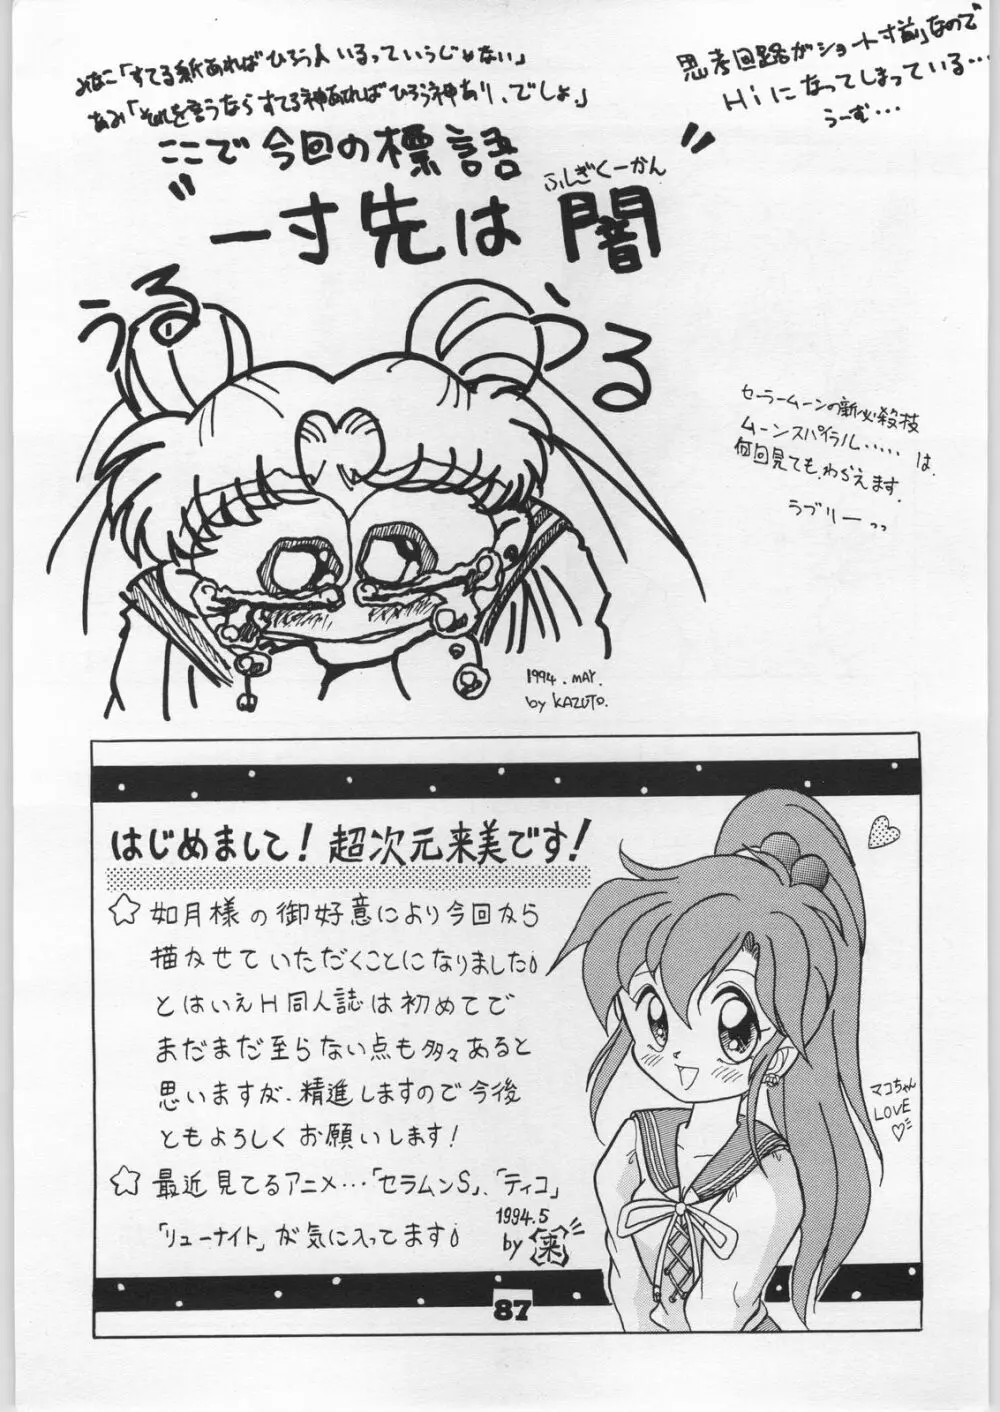 みなこ「すてる紙あればひろう人いるっていうじゃない」
あみ「それを言うならすてる神あればひろう神あり、でしょ」
思考回路がショート寸前」なので
Hiになってしまっている…
うーむ…
ここで今回の標語
ふしぎくーかん
"一寸先は闇"
うる
うる
セーラームーンの新必殺技
ムーンスパイラル.....は、
何回見ても、わらえます。
ラブリーっっ
1994.MAY.
by KAZUTO.
はじめまして!超次元来美です!
☆如月様の御好意により今回から
描かせていただくことになりました
とはいえH同人誌は初めてで
まだまだ至らない点も多々あると
思いますが、精進しますので今後
ともよろしくお願いします!
☆最近見てるアニメ…「セラムンS」、「ティコ」
「リューナイト」が気に入ってます
1994.5
by 来
マコちゃん
LOVE♡
87